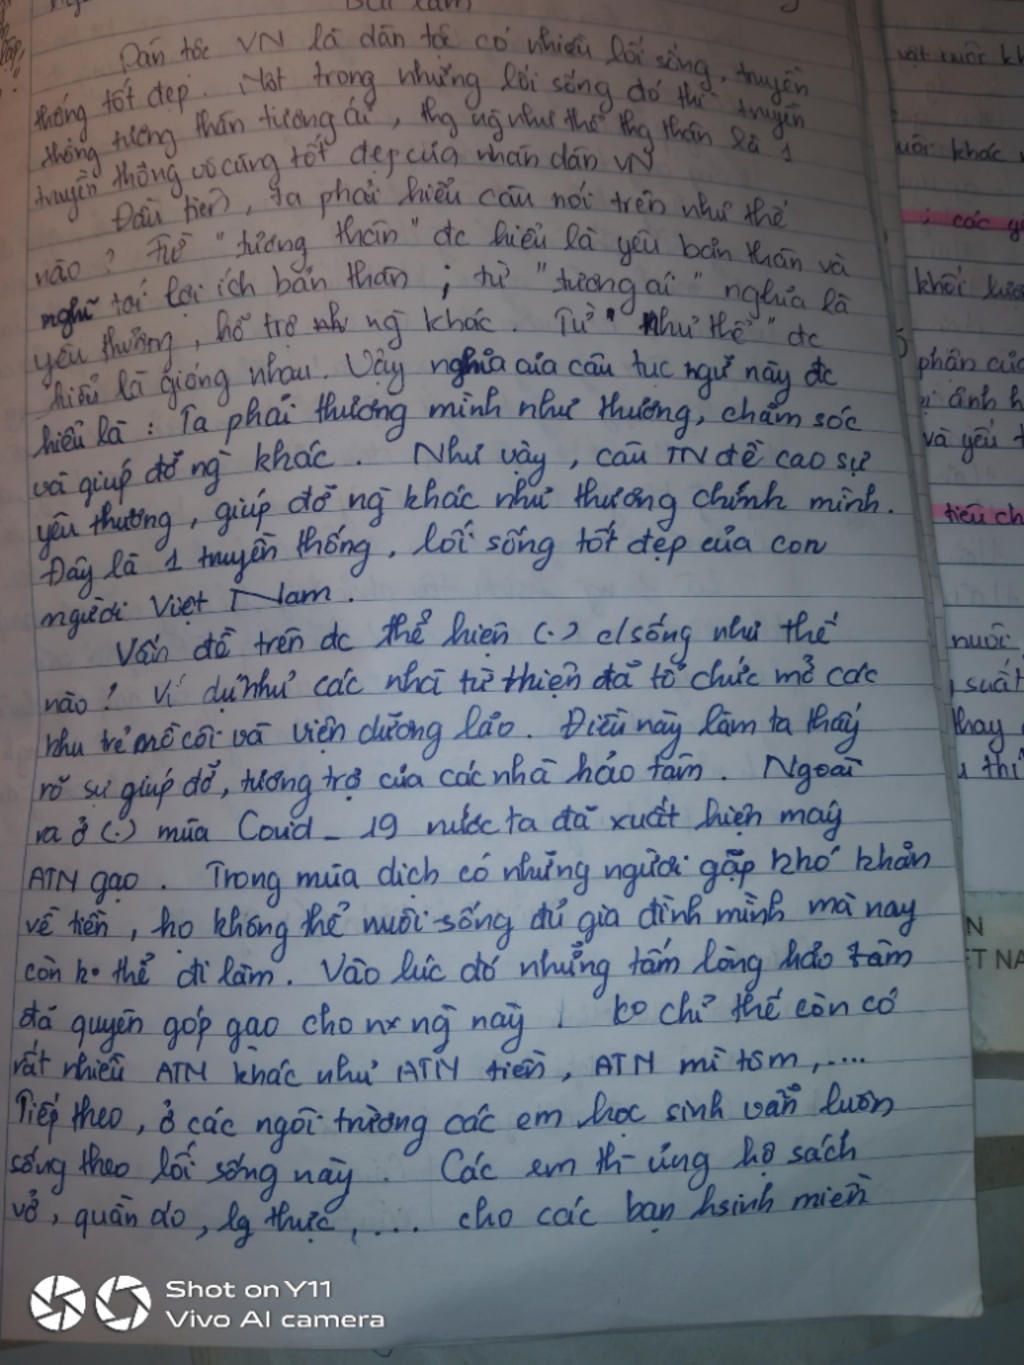 Bài làm
Dân tôc VN là dân tôc có nhiều lối sống, truyền
thống tốt đẹp. Một trong những lối sống đó thì truyền
thống tương thân tương ái, thg ng như thể thg thân là 1
truyền thống vô cùng tốt đẹp của nhân dân VN
Đầu tiên, ta phải hiểu câu nói trên như thế
nào? Từ "tương thân" đc hiểu là yêu bản thân và
nghĩ tới lợi ích bản thân; từ "tương ái" nghĩa là
yêu thương, hỗ trợ ng khác. Từ "như thể" đc
hiểu là giống nhau. Vậy nghĩa của câu tục ngữ này đc
hiểu là: Ta phải thương mình như thương, chăm sóc
và giúp đỡ ng khác. Như vậy, câu TN đề cao sự
yêu thương, giúp đỡ ng khác như thương chính mình.
Đây là 1 truyền thống, lối sống tốt đẹp của con
người Việt Nam.
Vấn đề trên đc thể hiện (.) c/sống như thế
nào? Ví dụ như các nhà từ thiện đã tổ chức mở các
khu trẻ mồ côi và viện dưỡng lão. Điều này làm ta thấy
rõ sự giúp đỡ, tương trợ của các nhà hảo tâm. Ngoài
ra ở (.) mùa Covid_19 nước ta đã xuất hiện máy
ATN gạo. Trong mùa dịch có những người gặp khó khăn
về tiền, họ không thể nuôi sống đủ gia đình mình mà nay
còn ko thể đi làm. Vào lúc đó những tấm lòng hảo tâm
đã quyên góp gạo cho nx ng này. ko chỉ thế còn có
rất nhiều ATM khác như ATM tiền, ATM mì tôm,....
Tiếp theo, ở các ngôi trường các em học sinh vẫn luôn
sống theo lối sống này. Các em th- ủng hộ sách
vở, quần áo, lg thực, ... cho các bạn hsinh miền
vật nuôi kh
nuôi khác
: các y
khối lượ
phân của
ánh h
và yếu t
tiêu ch
nuôi
suất
thay
thi
N
ỆT NA
Shot on Y11
Vivo AI camera